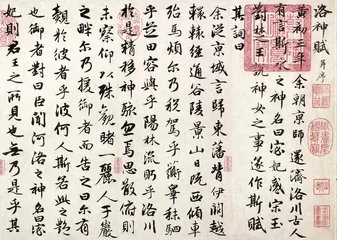 洛神賦 并序
黃初三年余朝京師還濟洛川古人
有言斯水之神名曰宓妃感宋玉
對楚王說神女之事遂作斯賦
其詞曰
余從京域言歸東藩背伊闕越
轘轅經通谷陵景山日既西傾車
殆馬煩爾乃稅駕乎蘅皋秣駟
乎芝田容與乎陽林流眄乎洛川
於是精移神駭忽焉思散俯則
未察仰以殊觀睹一麗人于巖
之畔爾乃援御者而告之曰爾有
覿於彼者乎彼何人斯若此之豔
也御者對曰臣聞河洛之神名曰宓
妃則君王之所見也無乃是乎其